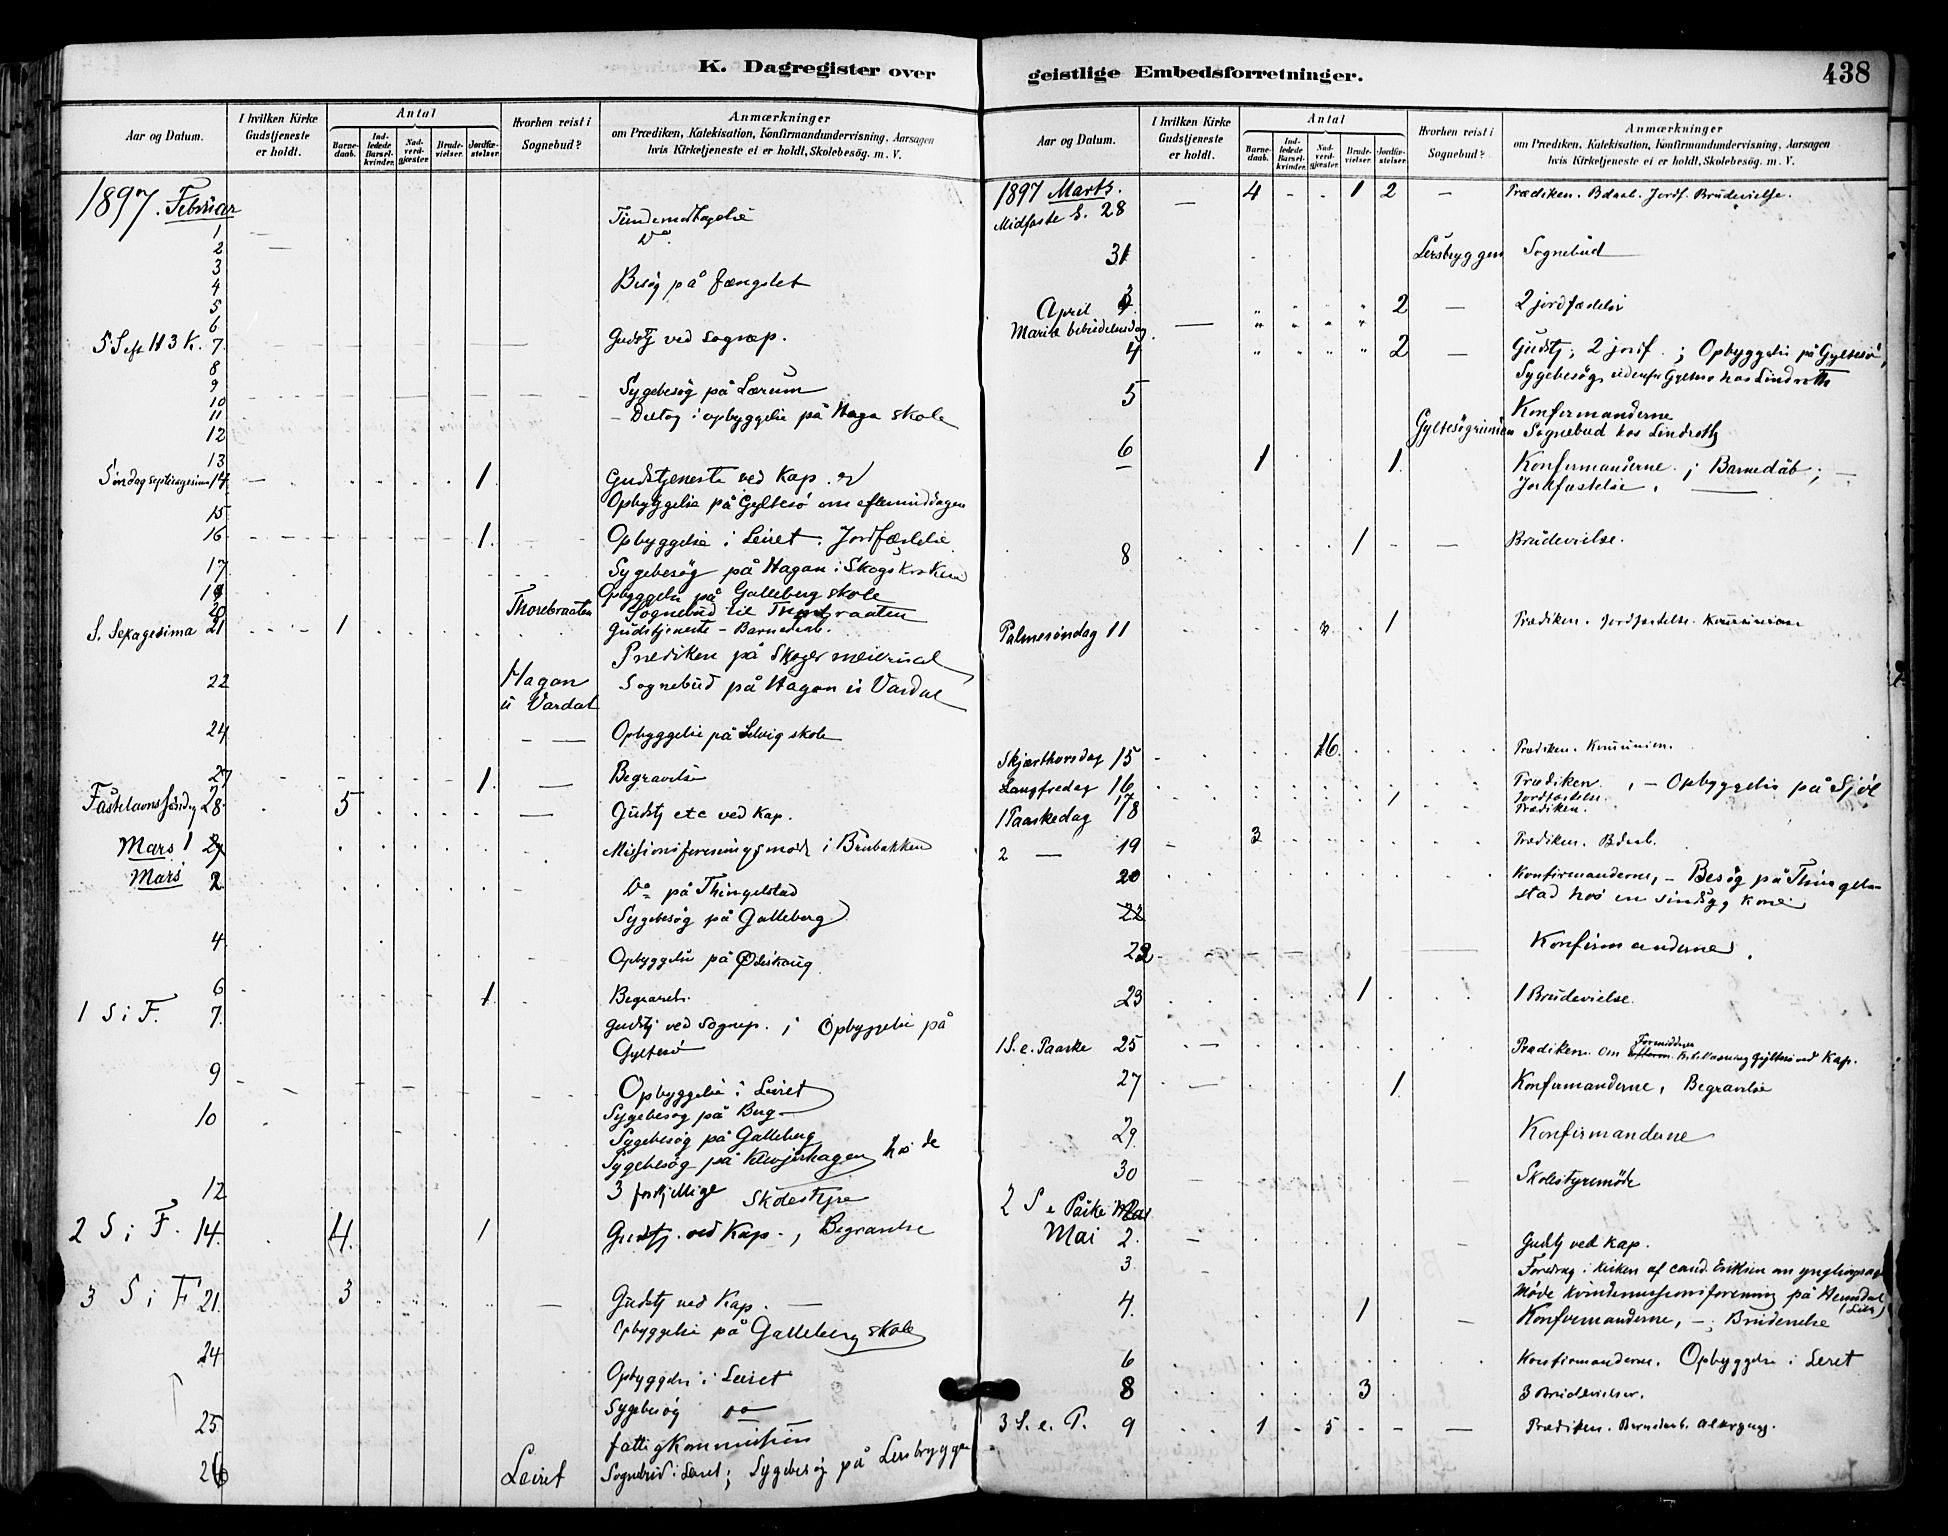 K. Dagregister over
Aar og Datum.
I hvilken Kirke Gudstjeneste er holdt.
Antal
Barne-daab.
Ind-ledede Barsel-kvinder.
Nad-verd-gjester.
Brude-vielser.
Jordfæ-stelser.
Hvorhen reist i Sognebud?
Anmærkninger
om Prædiken, Katekisation, Konfirmandundervisning, Aarsagen
hvis Kirketjeneste ei er holdt, Skolebesøg. m. V.
1897. Februar
1 Tiendemodtagelse
2 Do.
3
4 Besøg på fængslet
5
6
5 S eft H 3 K. 7. Gudstj ved Sognep.
8
9 Sygebesøg på Lærum
10
11 - Deltog i opbyggelse på Haga skole
12
13
Søndag Septuagesima 14 1 Gudstjeneste ved Kap.
15 Opbyggelse på Gyltesö om eftermiddagen
16 1 Opbyggelse i Leiret. Jordfæstelse
17 Sygebesøg på Hagan i Skogs
Opbyggelse på Galleberg skole
20 Thorebraaten Sognebud til
S. Sexagesima 21 1 Gudstjeneste - Barnedaab.
Prædiken på Skoger
22 Hagan Sognebud på Hagan
Vardal
24 Opbyggelse på Selvig skole
27 1 Begravelse
Fastelavnssøndag 28 5 Gudstj etc ved Kap.
Mars 1 Missionsforeningsmøde i Brubakken
Mars 2 Do på Thingelstad
Sygebesøg på Galleberg
4 Opbyggelse på Ødeskoug
6 1 Begravels.
1 S i F. 7. Gudstj ved Sognep. ; Opbyggelse på
Gyltesö
9 Opbyggelse i Leiret
10 Sygebesøg på Berg
Sygebesøg på Galleberg
Sygebesøg på hos de
3 forskjellige
12 Skolestyre
2 S i F. 14. 4. 1 Gudstj. ved Kap., Begravelse
3 S i F 21. 3 Gudstj ved Kap.
Opbyggelse på Galleberg skole
24 Opbyggelse i Leiret
Sygebesøg do
25 fattigkommission
26 Leiret Sognebud i Leiret; Sygebesøg på Lersbryggen
geistlige Embedsforretninger.
438
Aar og Datum.
I hvilken Kirke Gudstjeneste er holdt.
Antal
Barne-daab.
Ind-ledede Barsel-kvinder.
Nad-verd-gjester.
Brude-vielser.
Jordfæ-stelser.
Hvorhen reist i Sognebud?
Anmærkninger
om Prædiken, Katekisation, Konfirmandundervisning, Aarsagen
hvis Kirketjeneste ei er holdt, Skolebesøg. m. V.
1897 Marts.
Midfaste S. 28 4 - - 1 2 - Prædiken. Bdaab. Jordf. Brudevielse.
31 Lersbryggen Sognebud
April 3 2 - 2 jordfæstelse
Mariæ bebudelsesdag
4 2 - Gudstj; 2 jordf. ; Opbyggelse på Gyltesö,
Sygebesøg hos Lindroth
5 Konfirmanderne
Sognebud hos Lindroth
6 1 1 Konfirmanderne ; Barnedåb; -
Jordfæstelse.
8 1 - - Brudevielse.
Palmesøndag 11 1 Prædiken. Jordfæstelse. Kommunion
Skjærthorsdag 15 16 Prædiken. Kommunion.
Langfredag 16 Prædiken. , - Opbyggelse på Sjøl
17 1 Jordfæstelse.
1 Paaskedag 18 Prædiken.
2 — 19 3 Prædiken. Bdaab.
20 Konfirmanderne, - Besøg på Thingel-
stad hos en sindsyg kone
22
22 Konfirmanderne.
23 1 1 Brudevielse.
1 S. e. Paaske 25 Prædiken. om Formidden Bibellæsning Gyltesö ved Kap.
27 1 Konfirmanderne, Begravelse
29 Konfirmanderne
30 Skolestyremöde
2 S e Påske Mai
Mai 2. Gudstj ved Kap.
3 Foredrag i kirken af cand. Eriksen om
Møde kvindemissionsforening på
4. 1 Konfirmanderne, -; Brudevielse
6 Konfirmanderne. Opbyggelse i Leiret
8 3 3 Brudevielser.
3 S. e. P. 9 1 - 5 - - Prædiken. Barnedaab. Altergang.